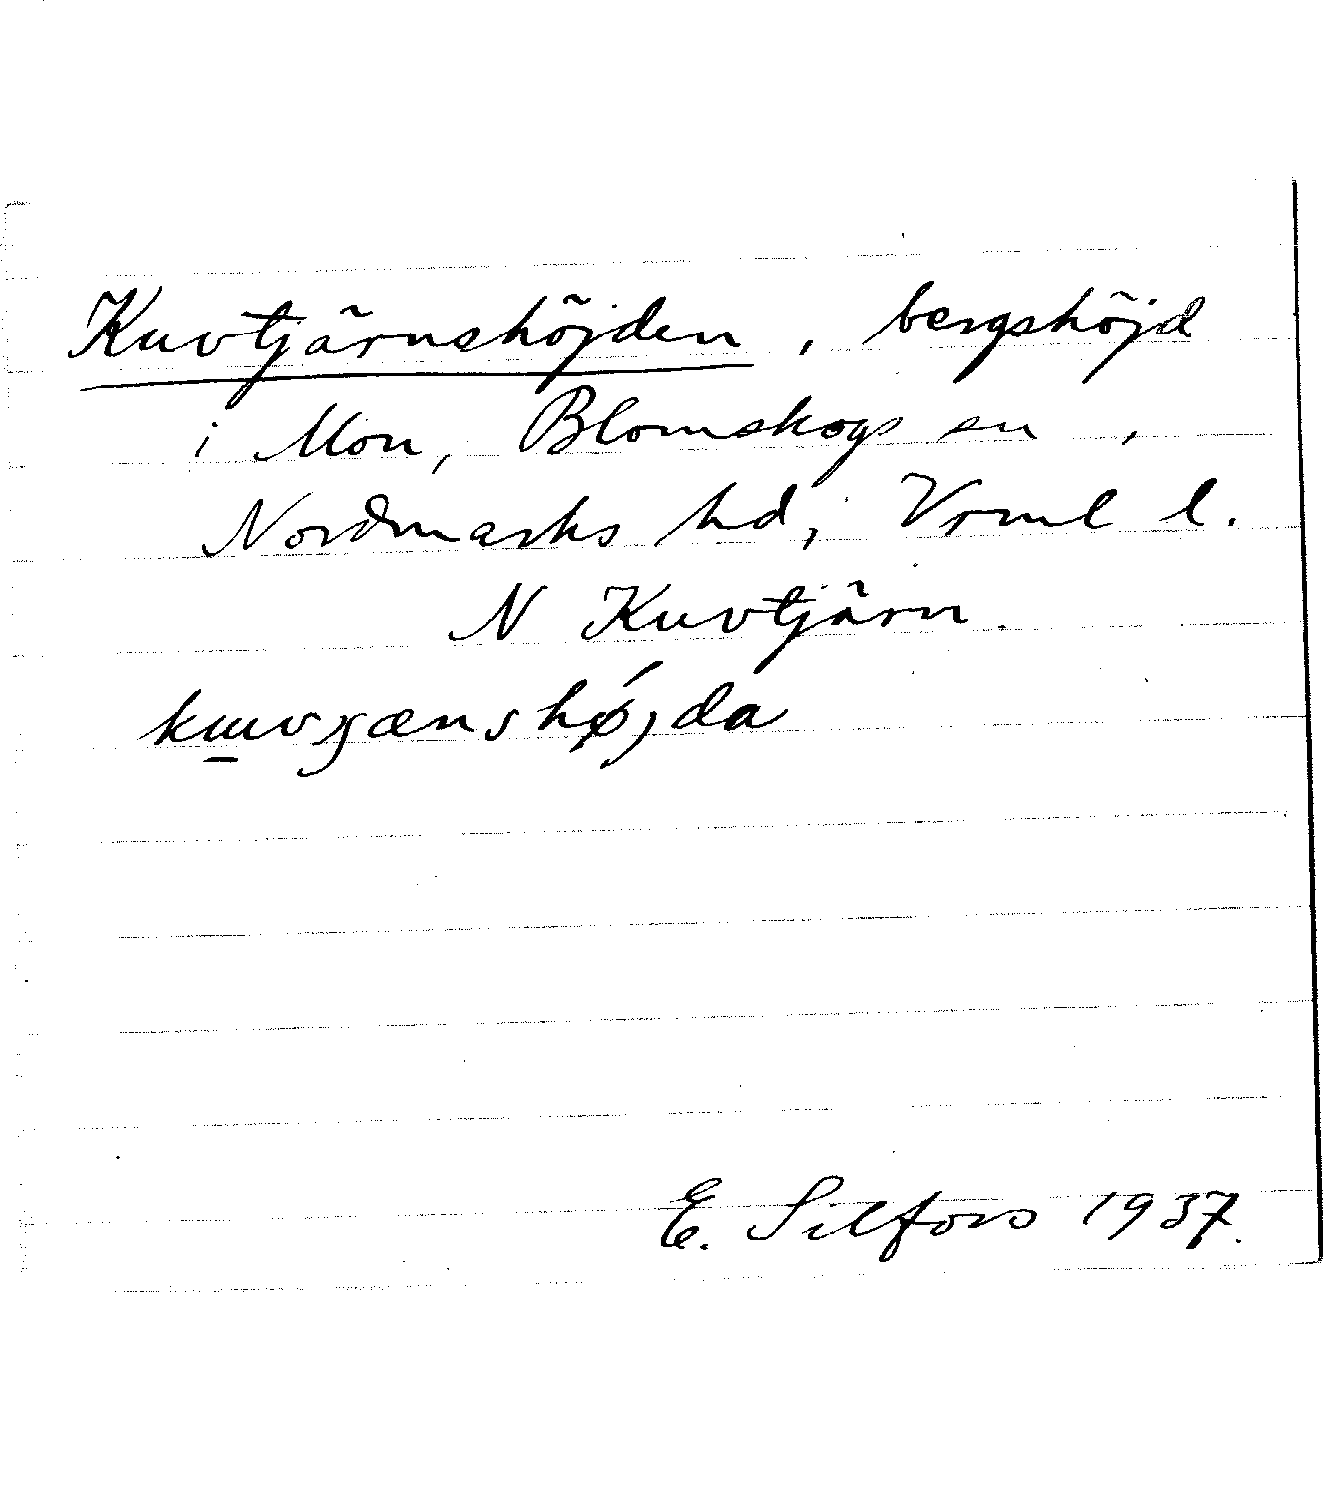 Kuvtjärnshöjden, bergshöjd
i Mon, Blomskogs sn,
Nordmarks hd, Vrml l.
N Kuvtjärn.
E. Silfors 1937.